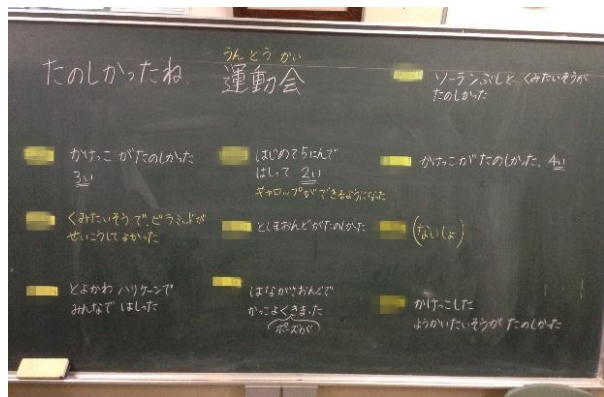 うんどうかい
たのしかったね 運動会
ソーランぶしと、くみたいそうが
たのしかった
かけっこ がたのしかった
3い
はじめて5にんで
はしって 2い
ギャロップができるようになった
かけっこがたのしかった、4い
くみたいそうで、ピラミッドが
せいこうしてよかった
としまおんどがたのしかった
(ないしょ)
とよかわハリケーンで
みんなではしった
はながさおんどで
かっこよくきまった
ポーズが
かけっこした
ようかいたいそうが たのしかった